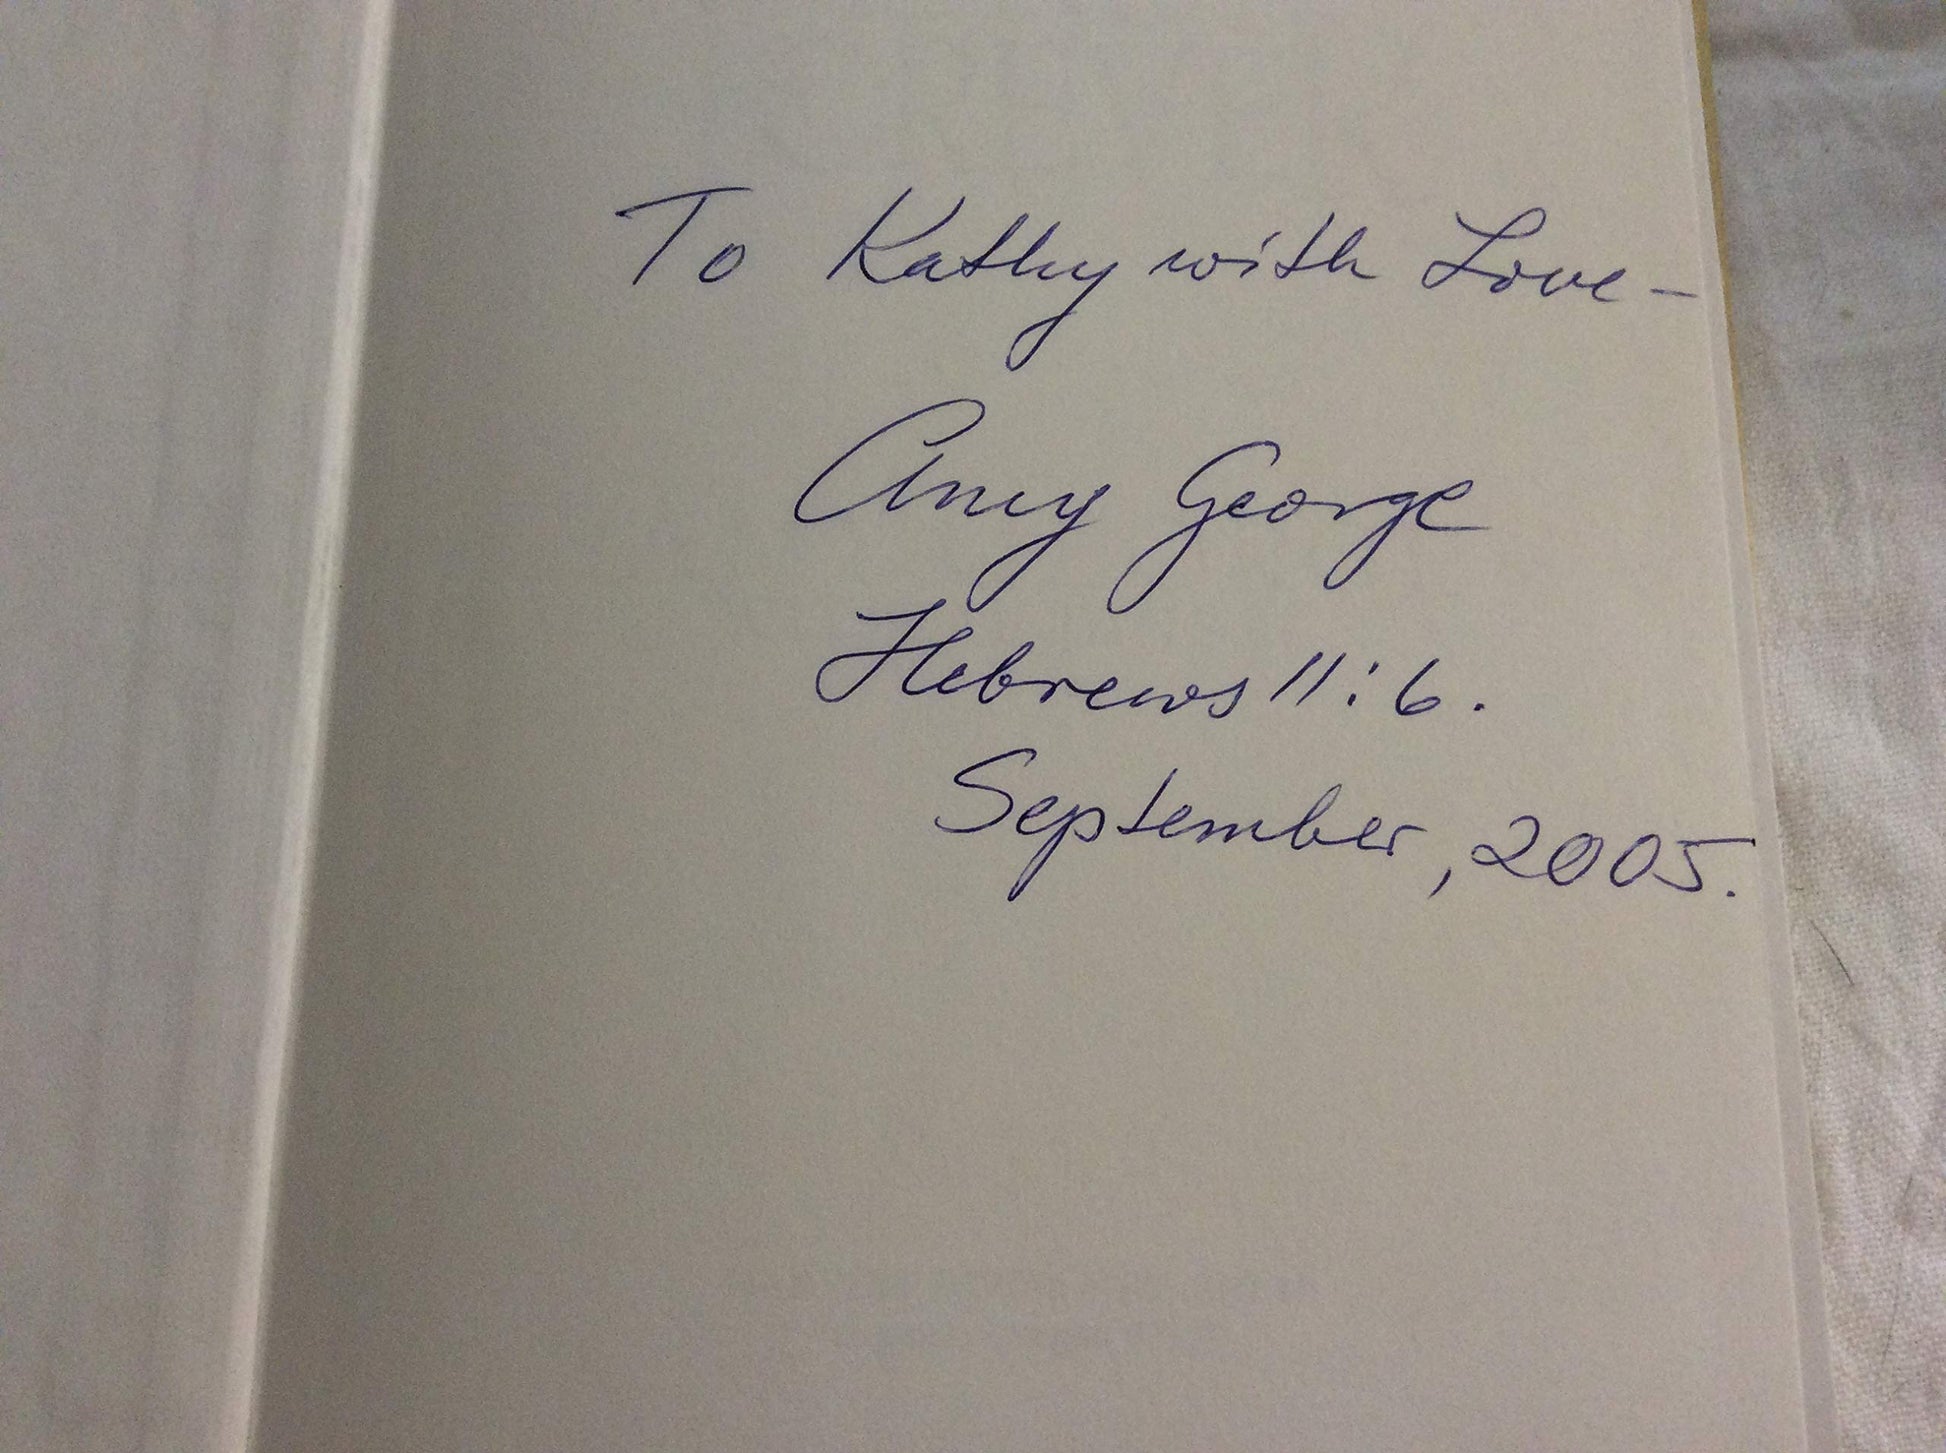 To Kathy with Love -
Amy George
Hebrews 11:6.
September, 2005.